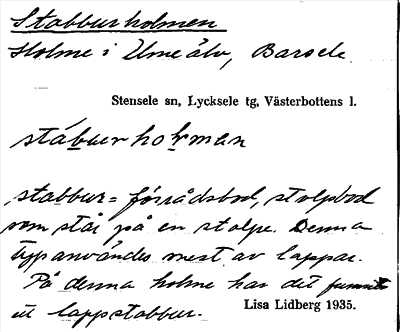 Stabburholmen
Holme i Ume älv, Barsele.
Stensele sn, Lycksele tg, Västerbottens l.
stábburholman
stabbur = förrådsbod, stolpbod
som står på en stolpe. Denna
typ användes mest av lappar.
På denna holme har det funnits
ett lappstabbur.
Lisa Lidberg 1935.